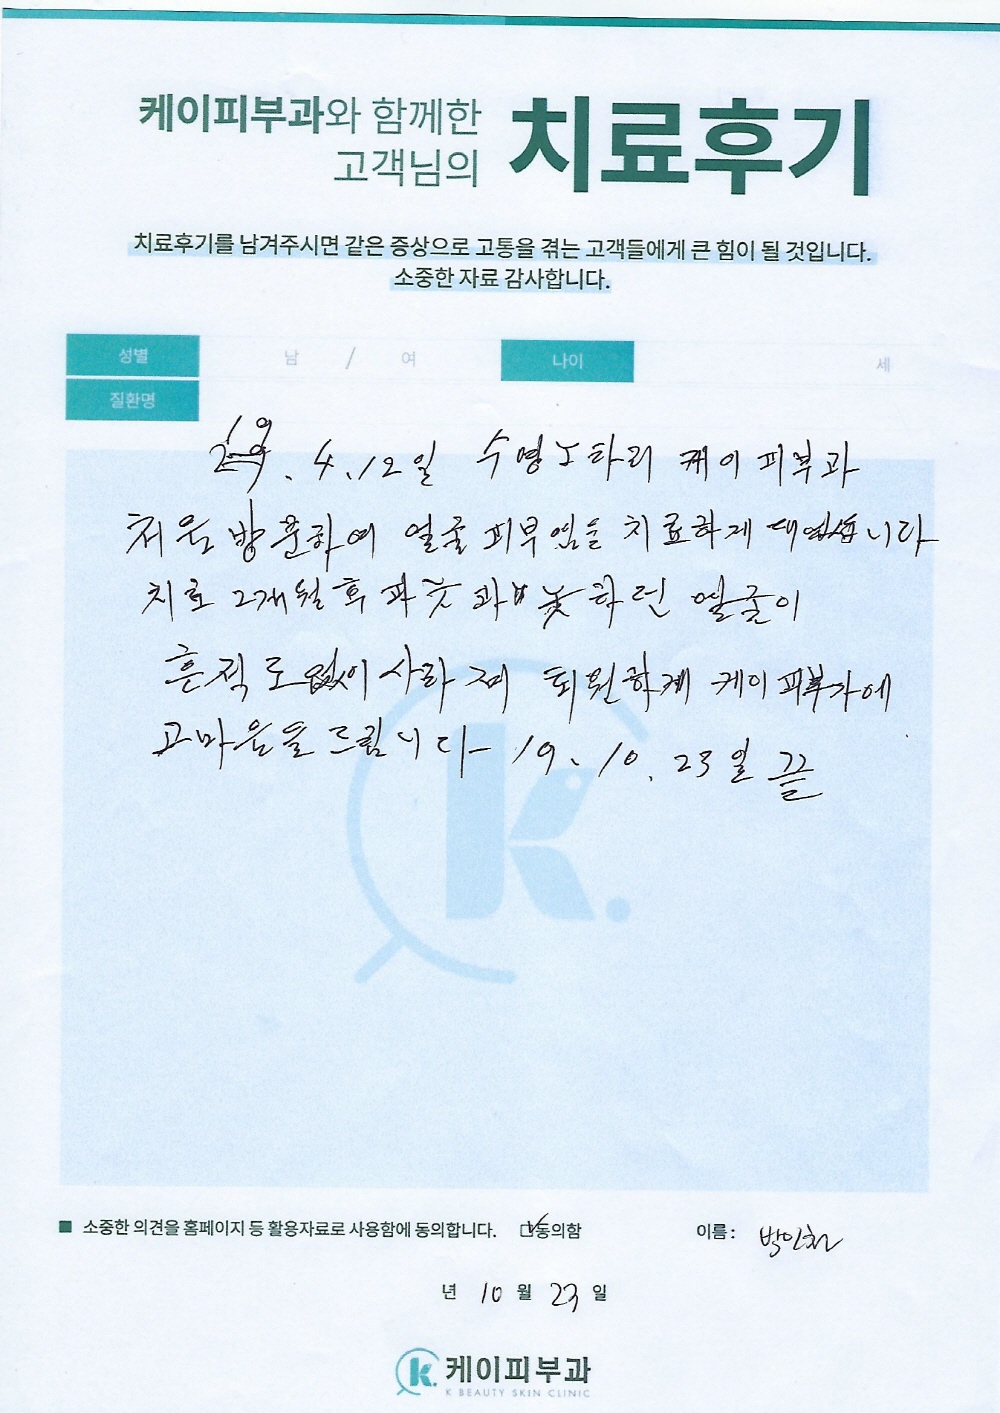 케이피부과와 함께한
고객님의
치료후기
치료후기를 남겨주시면 같은 증상으로 고통을 겪는 고객들에게 큰 힘이 될 것입니다.
소중한 자료 감사합니다.
성별 남 / 여 나이 세
질환명
19. 4. 12일 수영로타리 케이피부과
처음 방문하여 얼굴 피부염을 치료하게 대였습니다
치료 2개월 후 하던 얼굴이
흔적도없이 사라저 퇴원하게 케이피부가에
고마음을 드림니다 19. 10. 23일 끝
k.
■ 소중한 의견을 홈페이지 등 활용자료로 사용함에 동의합니다. □동의함 이름:
년 10 월 23 일
k. 케이피부과
K BEAUTY SKIN CLINIC